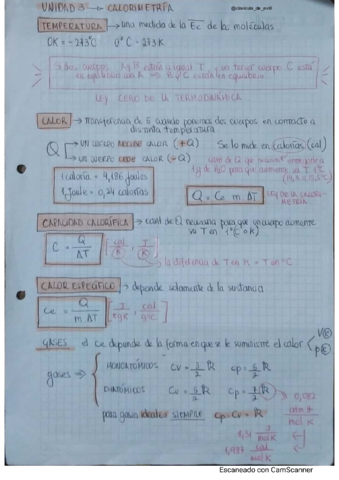 UNIDAD 3 → CALORIMETRÍA
TEMPERATURA → una medida de la Ec de las moléculas
0K = -273°C 0°C = 273K
Si dos cuerpos A y B están a igual T, y un tercer cuerpo C está
en equilibrio con A ⇒ B y C están en equilibrio
LEY CERO DE LA TERMODINÁMICA
CALOR → Transferencia de E cuando ponemos dos cuerpos en contacto a
distinta temperatura
Q → UN CUERPO RECIBE CALOR (+Q)
→ UN CUERPO CEDE CALOR (-Q)
Se lo mide en calorías (cal)
1 caloría = 4,186 Joules
1 Joule = 0,24 calorías
Q = Ce m ΔT
CAPACIDAD CALORÍFICA → cant de Q necesaria para que un cuerpo aumente
su T en 1°C o K
C = Q / ΔT [cal / K, J / K]
la diferencia de T en K = T en °C
CALOR ESPECÍFICO → depende solamente de la sustancia
Ce = Q / m ΔT [J / Kg K, cal / g°C]
GASES el Ce depende de la forma en que se le suministre el calor
gases → MONOATÓMICOS Cv = 3/2 R Cp = 5/2 R
DIATÓMICOS Cv = 5/2 R Cp = 7/2 R
para gases ideales SIEMPRE Cp - Cv = R
0,082
8,31 J / mol K
1,987 cal / mol K
Escaneado con CamScanner